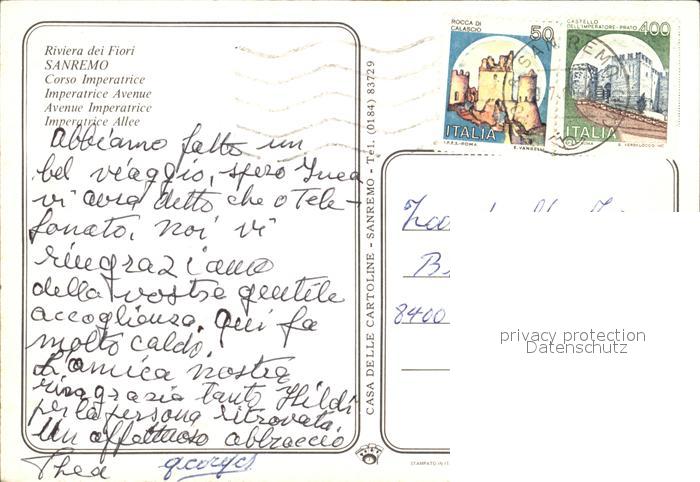 Riviera dei Fiori
SANREMO
Corso Imperatrice
Imperatrice Avenue
Avenue Imperatrice
Imperatrice Allee
Abbiamo fatto un
bel viaggio, spero
vi avra detto che o Tele-
fonato, noi vi
ringraziamo
della vostra gentile
accoglienza. Qui fa
molto caldo.
L'amica nostra
ringrazia tanto Hildi
per la persona ritrovata.
Un affettuoso abbraccio
Thea
CASA DELLE CARTOLINE - SANREMO - Tel. (0184) 83729
ROCCA DI
CALASCIO
50
ITALIA
I.P.Z.S. - ROMA
E. VANGELLI
CASTELLO
DELL'IMPERATORE - PRATO
400
ITALIA
SANREMO
8400
privacy protection
Datenschutz
STAMPATO IN